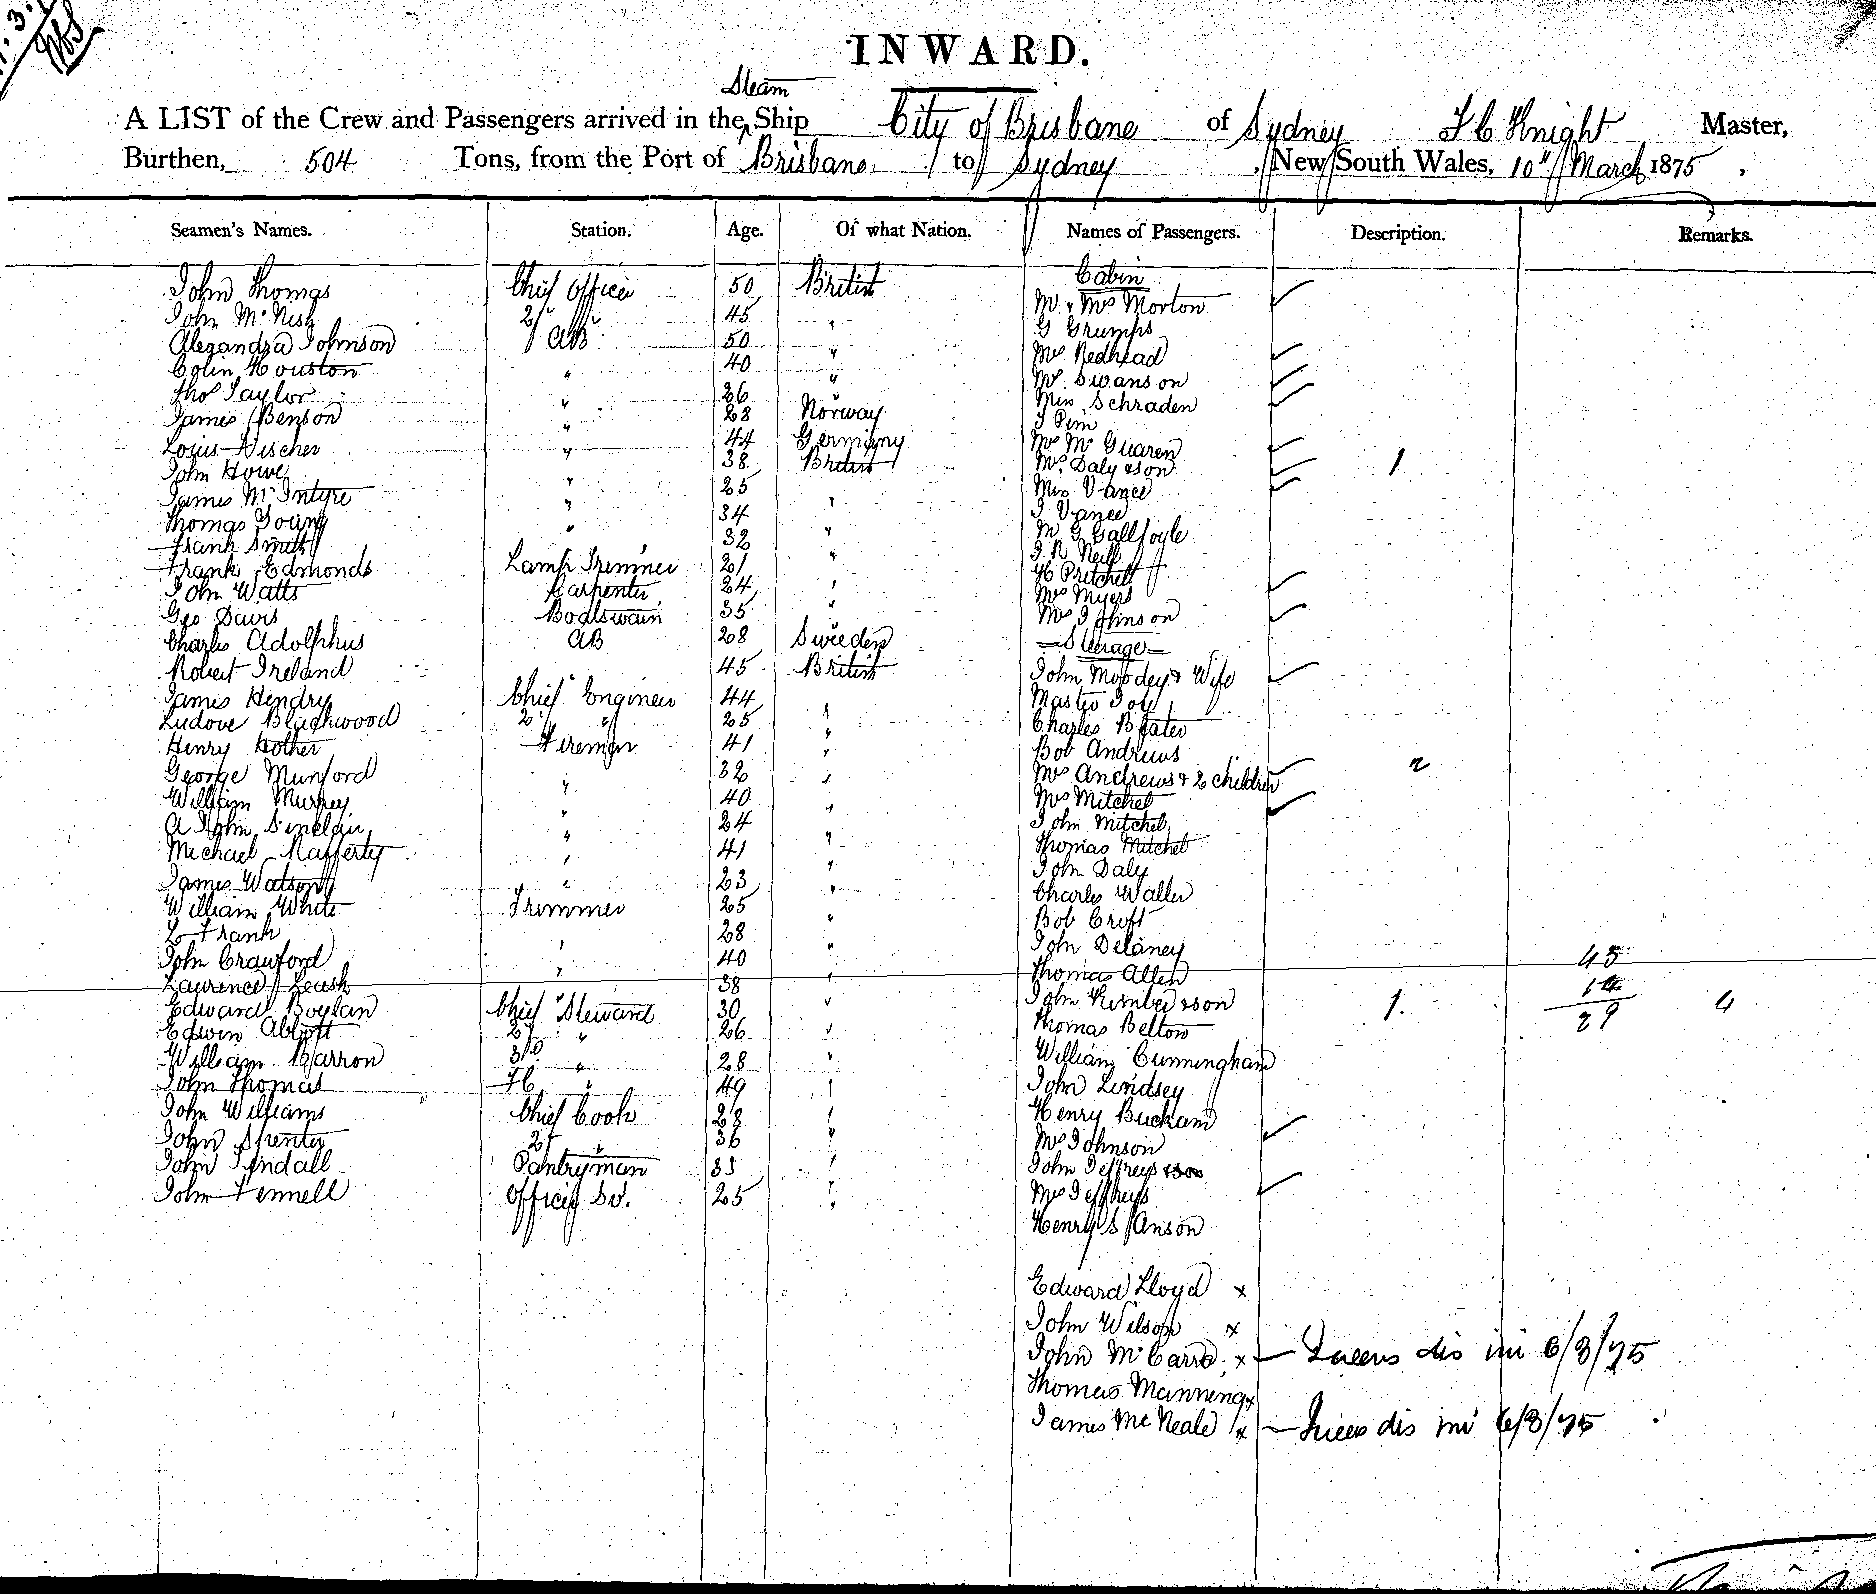 INWARD.
Steam
A LIST of the Crew and Passengers arrived in the Ship City of Brisbane of Sydney Knight Master,
Burthen, 504 Tons, from the Port of Brisbane to Sydney, New South Wales, 10" March 1875.
Seamen's Names. Station. Age. Of what Nation. Names of Passengers. Description. Remarks.
John Thomas Chief Officer 50 British Cabin
John McNish 2d " 45 " Mr & Mrs Morton
Alexandra Johnson AB 50 " G Grumps
Colin Houston " 40 " Mrs Redhead
Thos Taylor " 26 " Mrs Swanson
James Benson " 28 Norway Miss Schraden
Louis Discher " 44 Germany J Pim
John Howe " 38 British Mrs McGuaren
James McIntyre " 25 " Mrs Daly & son 1
Thomas Young " 34 " Miss Vance
Frank Smith " 32 " J Vance
Frank Edmonds Lamp Trimmer 21 " M G Gallfoyle
John Watts Carpenter 24 " J R Neill
Geo Davis Boatswain 35 " H Pritchett
Charles Adolphus AB 28 Sweden Mrs Myers
Robert Ireland " 45 British Mrs Johnson
James Hendry Chief Engineer 44 " Steerage
Ludove Blackwood 2 " 25 " John Moodey & Wife
Henry Hother Fireman 41 " Master
George Munford " 32 " Charles
William Murrey " 40 " Bob Andrews
A John Sinclair " 24 " Mrs Andrews & 2 children 2
Michael Rafferty " 41 " Mrs Mitchel
James Watson " 23 " John Mitchel
William White Trimmer 25 " Thomas Mitchel
Frank " 28 " John Daly
John Crawford " 40 " Charles Waller
Laurence Leash " 38 " Bob Croft
Edward Boylan Chief Steward 30 " John Delaney
Edwin Abbott 2d " 26 " Thomas Allen
William Barron 3rd " 28 " John Kimber & son 1.
John Thomas " 49 " Thomas Belton
John Williams Chief Cook 28 " William Cunningham
John Spenter 2d " 36 " John Lindsey
John Tyndall Pantryman 33 " Henry Bucham
John Fennell Officers Sv. 25 " Mrs Johnson
John Jeffreys
Mrs Jeffreys
Henry S Anson
Edward Lloyd x
John Wilson x
John McCarro x dis 6/3/75
Thomas Manning x
James McNeale x dis 6/3/75
43
14
29 4